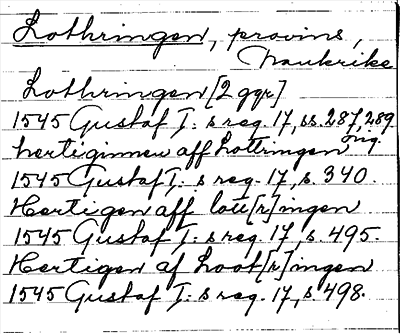 Lothringen, provins,
Frankrike
Lothringen [2 ggr]
1545 Gustaf I: s reg. 17, ss. 287, 289
hertiginnen aff Lottringen
1545 Gustaf I: s reg. 17, s. 340.
Hertigen aff lott[r]ingen
1545 Gustaf I: s reg. 17, s. 495.
Hertigen af Loot[r]ingen
1545 Gustaf I: s reg. 17, s. 498.